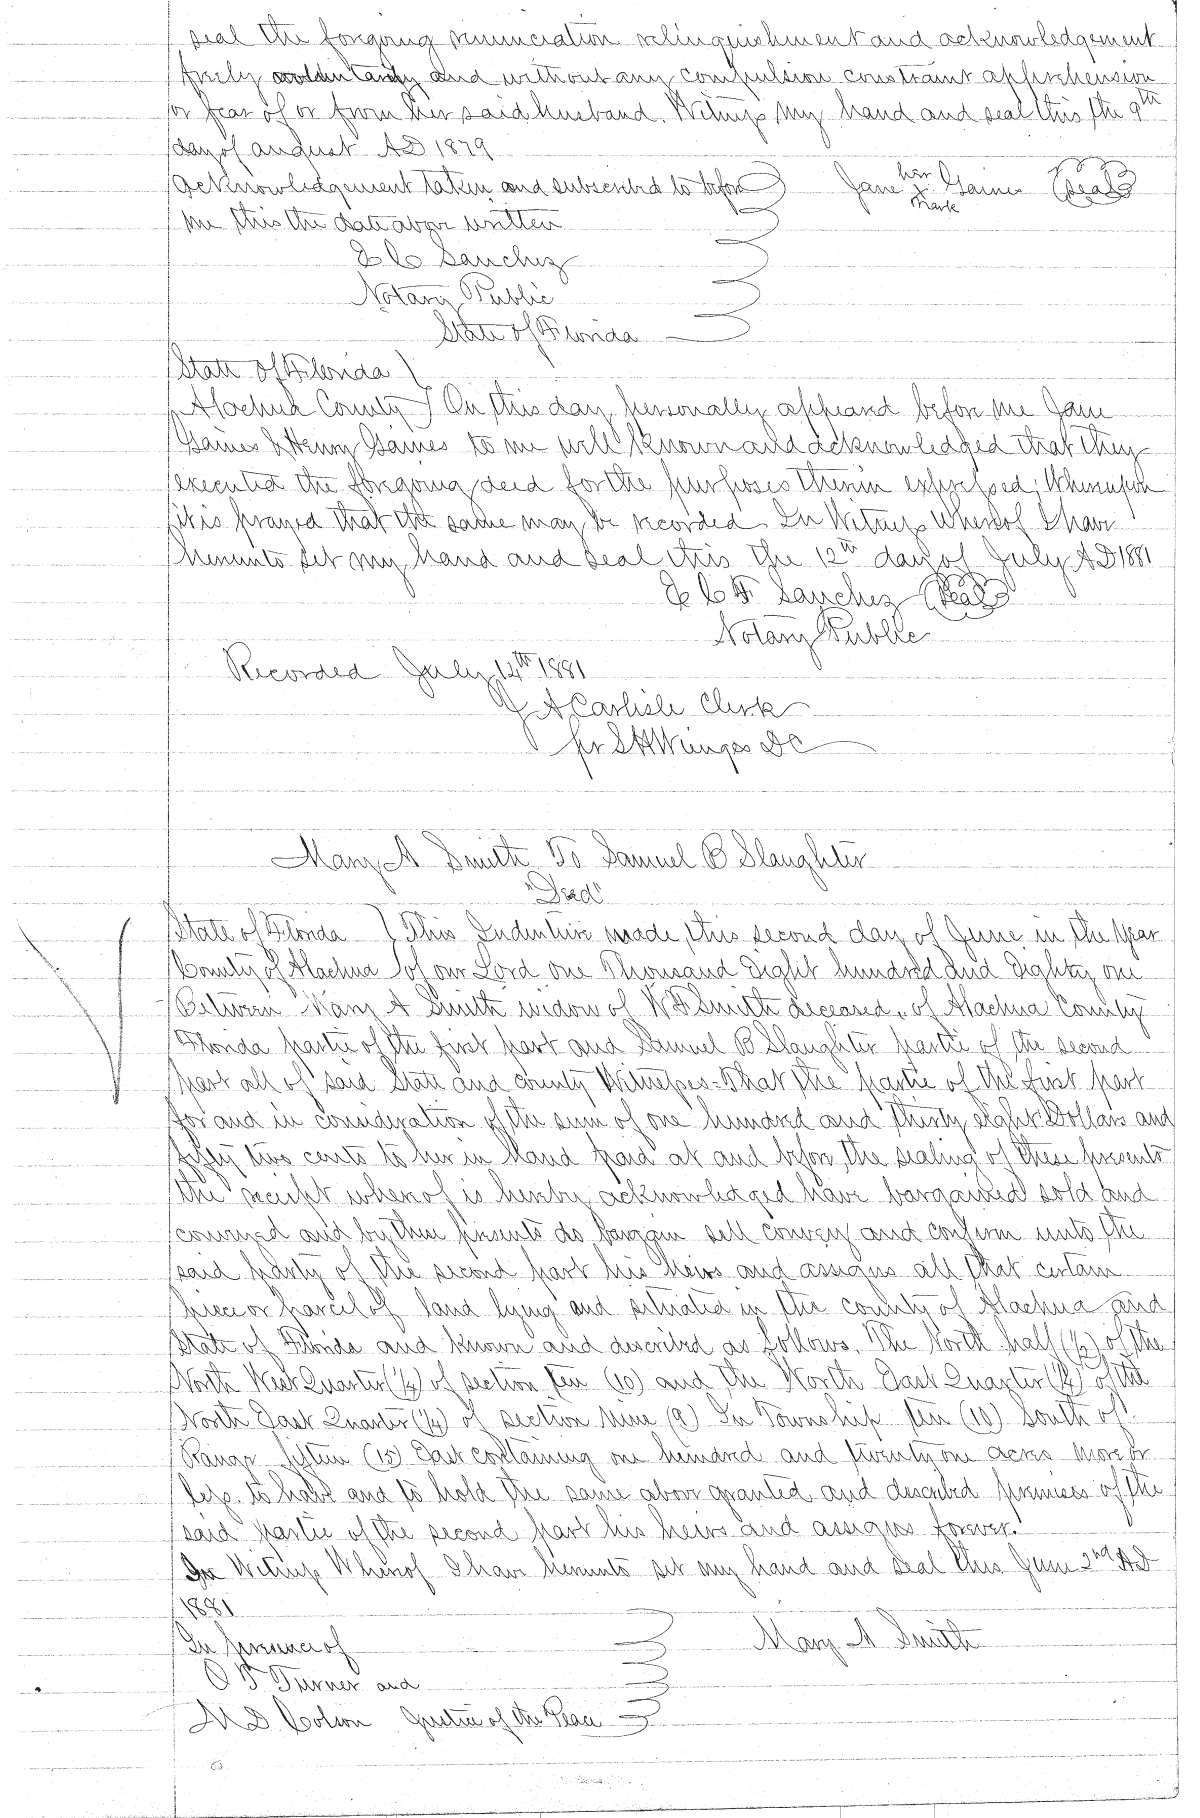 seal the forgoing renunciation relinquishment and acknowledgement
freely and without any compulsion constraint apprehension
or fear of or from her said husband. Witness my hand and seal this the 9th
day of august AD 1879
acknowledgement taken and subscribed to before
me this the date above written
Jane her x mark Gaines (Seal)
E C Sanchez
Notary Public
State of Florida
State of Florida )
Alachua County } On this day personally appeard before me Jane
Gaines & Henry Gaines to me well known and acknowledged that they
executed the forgoing deed for the purposes therein expressed; Whereupon
it is prayed that the same may be recorded. In Witness Whereof I have
hereunto set my hand and seal this the 12th day of July AD 1881
E C F Sanchez (Seal)
Notary Public
Recorded July 14th 1881
J A Carlisle Clerk
pr S H Wienges DC
Mary A Smith To Samuel B Slaughter
"Deed"
State of Florida } This Indenture made this second day of June in the year
County of Alachua } of our Lord one Thousand Eight hundred and Eighty one
Between Mary A Smith widow of W F Smith deceased, of Alachua County
Florida partie of the first part and Samuel B Slaughter partie of the second
part all of said State and county Witnesses-That the partie of the first part
for and in consideration of the sum of one hundred and thirty eight Dollars and
fifty two cents to her in hand paid at and before the sealing of these presents
the receipt whereof is hereby acknowledged have bargained sold and
conveyed and by these presents do bargain sell convey and confirm unto the
said party of the second part his heirs and assigns all that certain
piece or parcel of land lying and situated in the county of Alachua and
State of Florida and known and described as follows. The North half (1/2) of the
North West Quarter (1/4) of section ten (10) and the North East Quarter (1/4) of the
North East Quarter (1/4) of section nine (9) In Township ten (10) South of
Range fifteen (15) East containing one hundred and twenty one acres more or
less. to have and to hold the same above granted and described premises of the
said partie of the second part his heirs and assigns forever.
In Witness Whereof I have hereunto set my hand and seal this June 2nd AD
1881
In presence of
Mary A Smith
O F Turner and
M D Colson Justice of the Peace